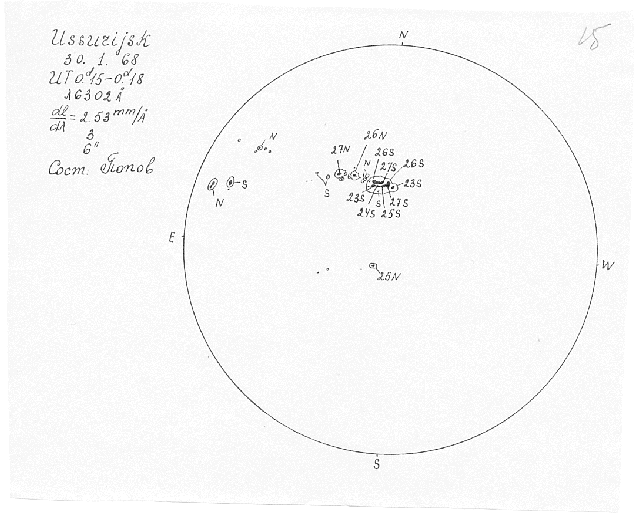 Ussurijsk
30. 1. 68
UT 0.ᵈ15-0.ᵈ18
λ 6302 Å
dl/dλ = 2.53 mm/Å
3
6"
Сост. Попов
N
N
26N
27N
26S
N
27S
26S
S
S
23S
23S
S
27S
N
24S
25S
E
W
25N
S